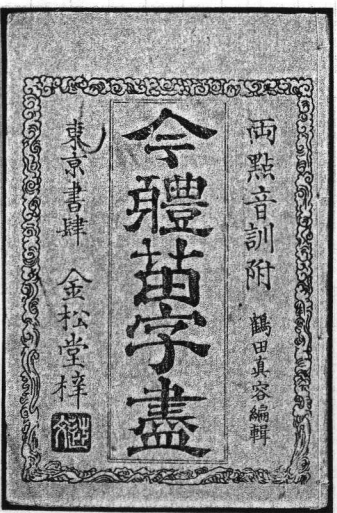 両點音訓附 鶴田真容編輯
今體苗字盡
東京書肆 金松堂梓